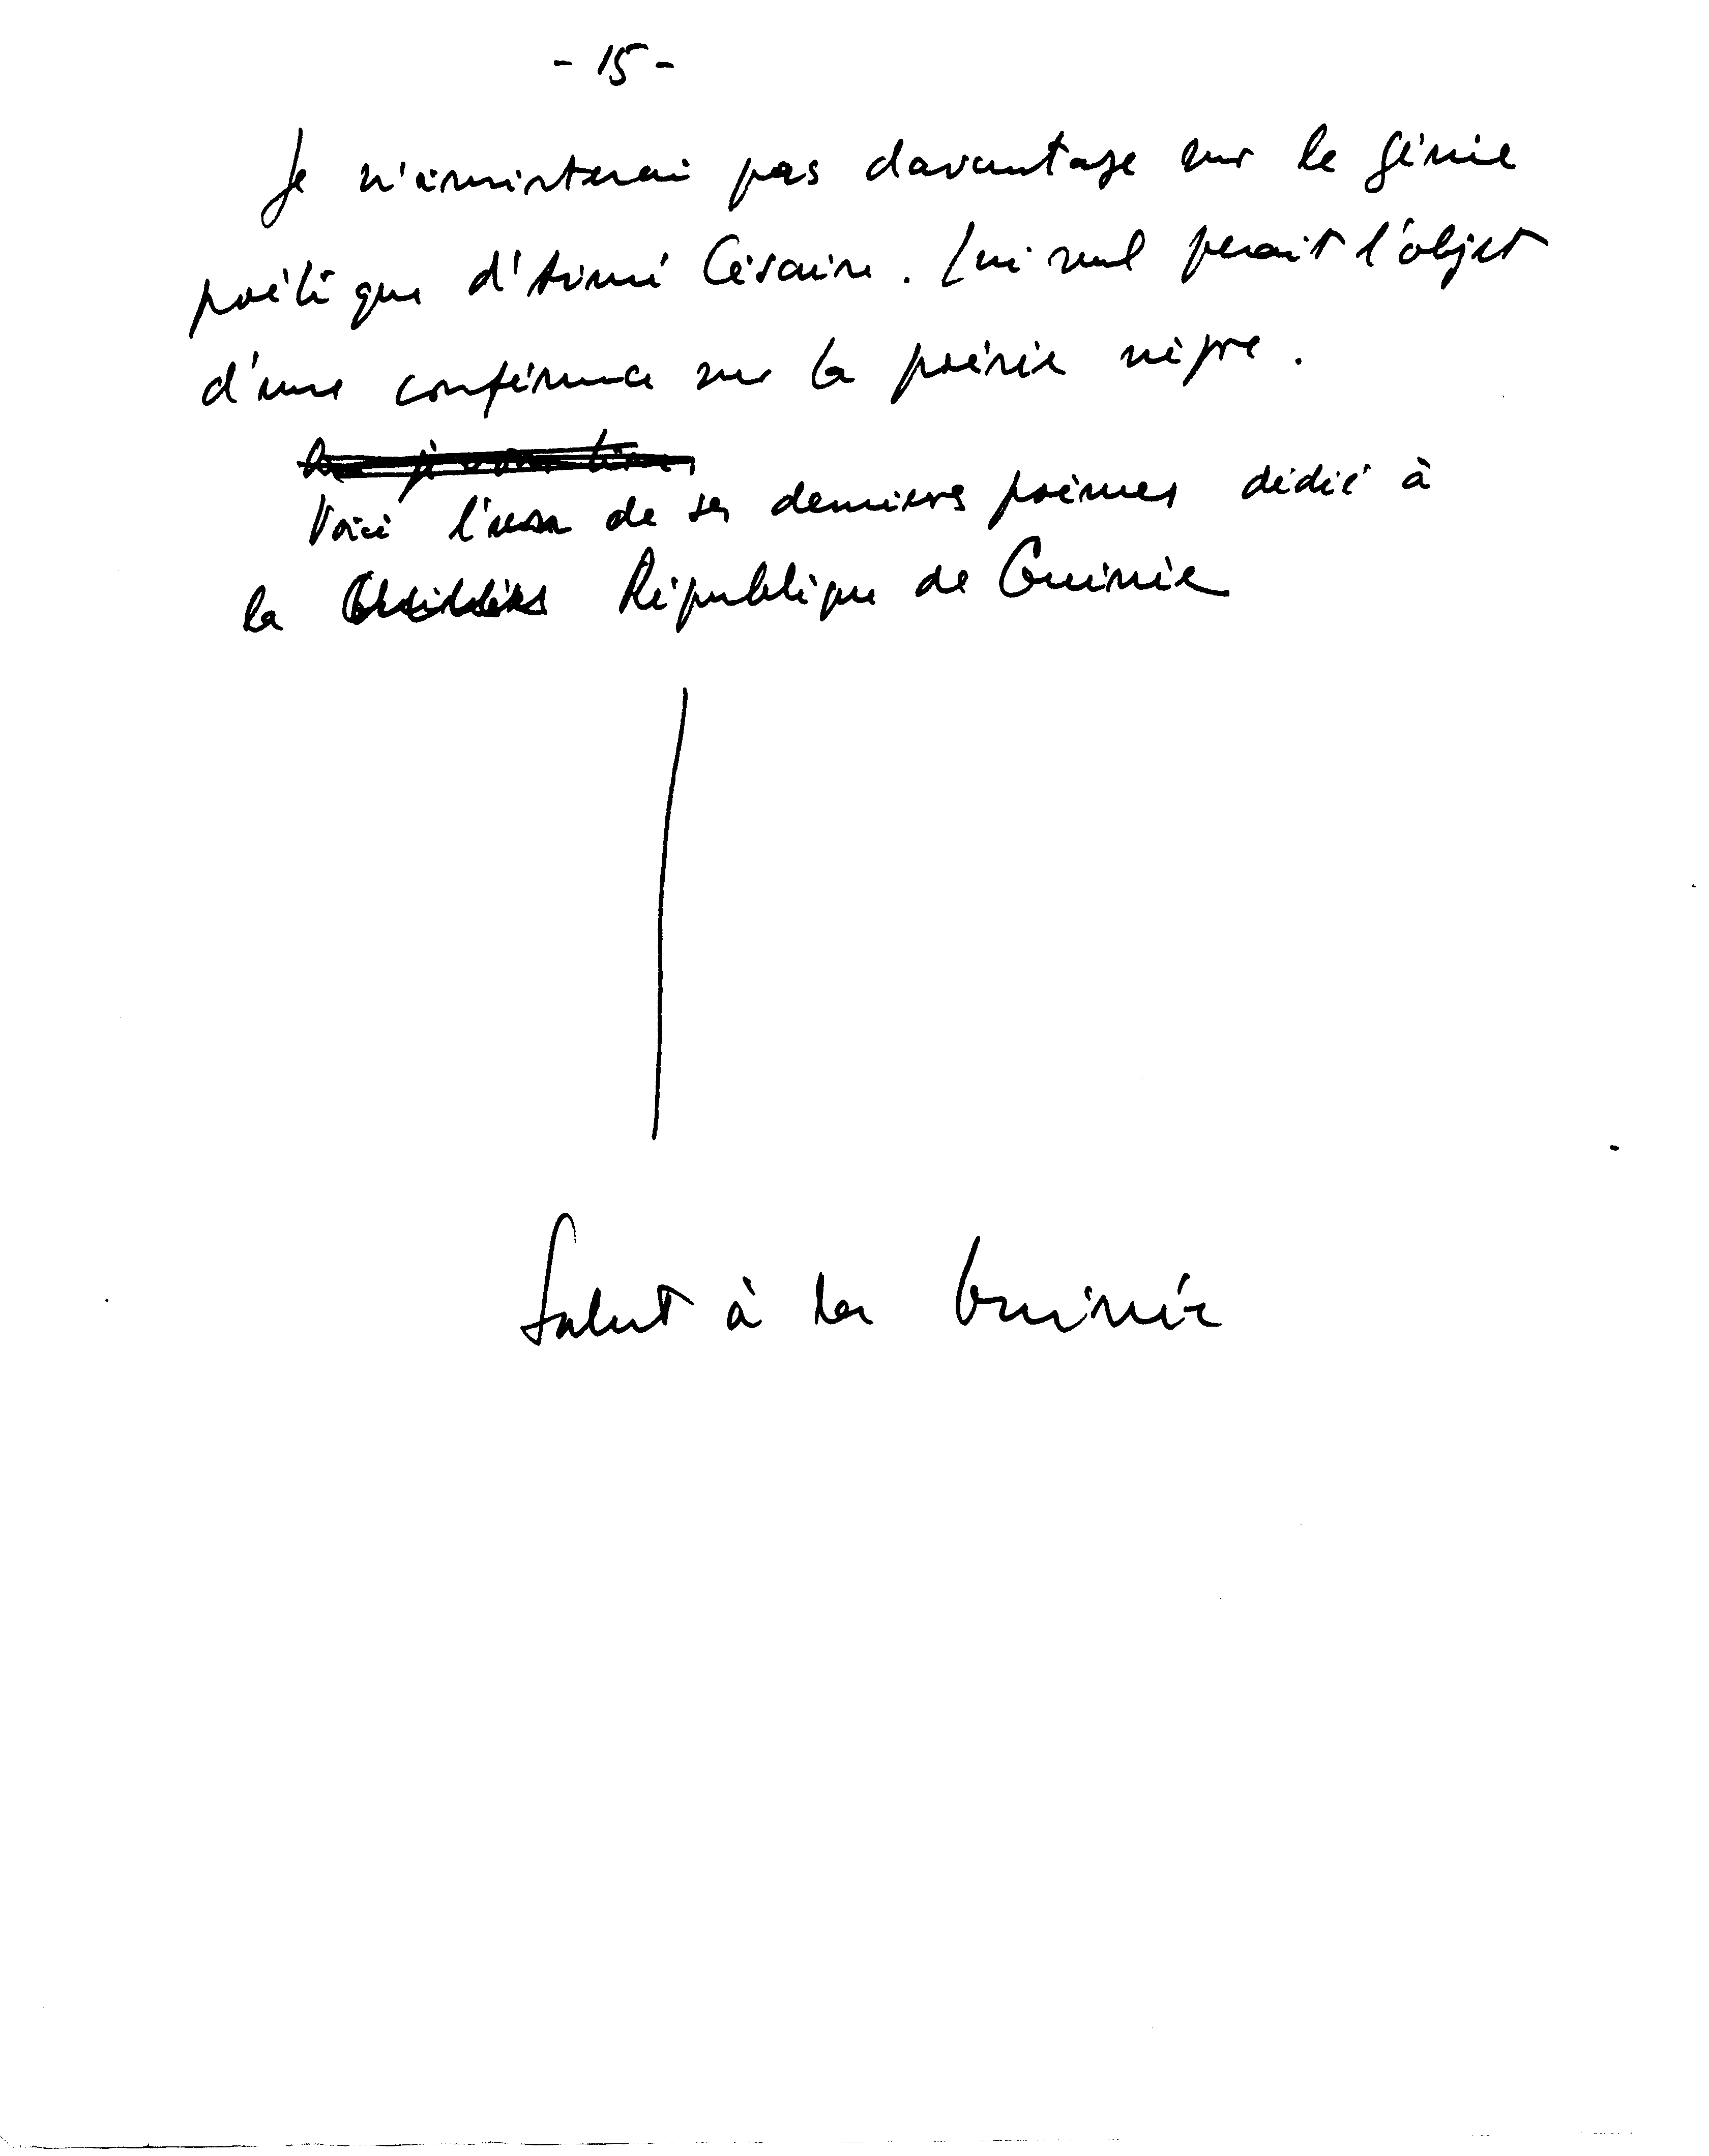 - 15 -
Je n'insisterai pas davantage sur le génie
poétique d'Aimé Césaire. Lui seul ferait l'objet
d'une conférence sur la poésie nègre.
Voici l'un de ses derniers poèmes dédié à
la République de Guinée
Salut à la Guinée